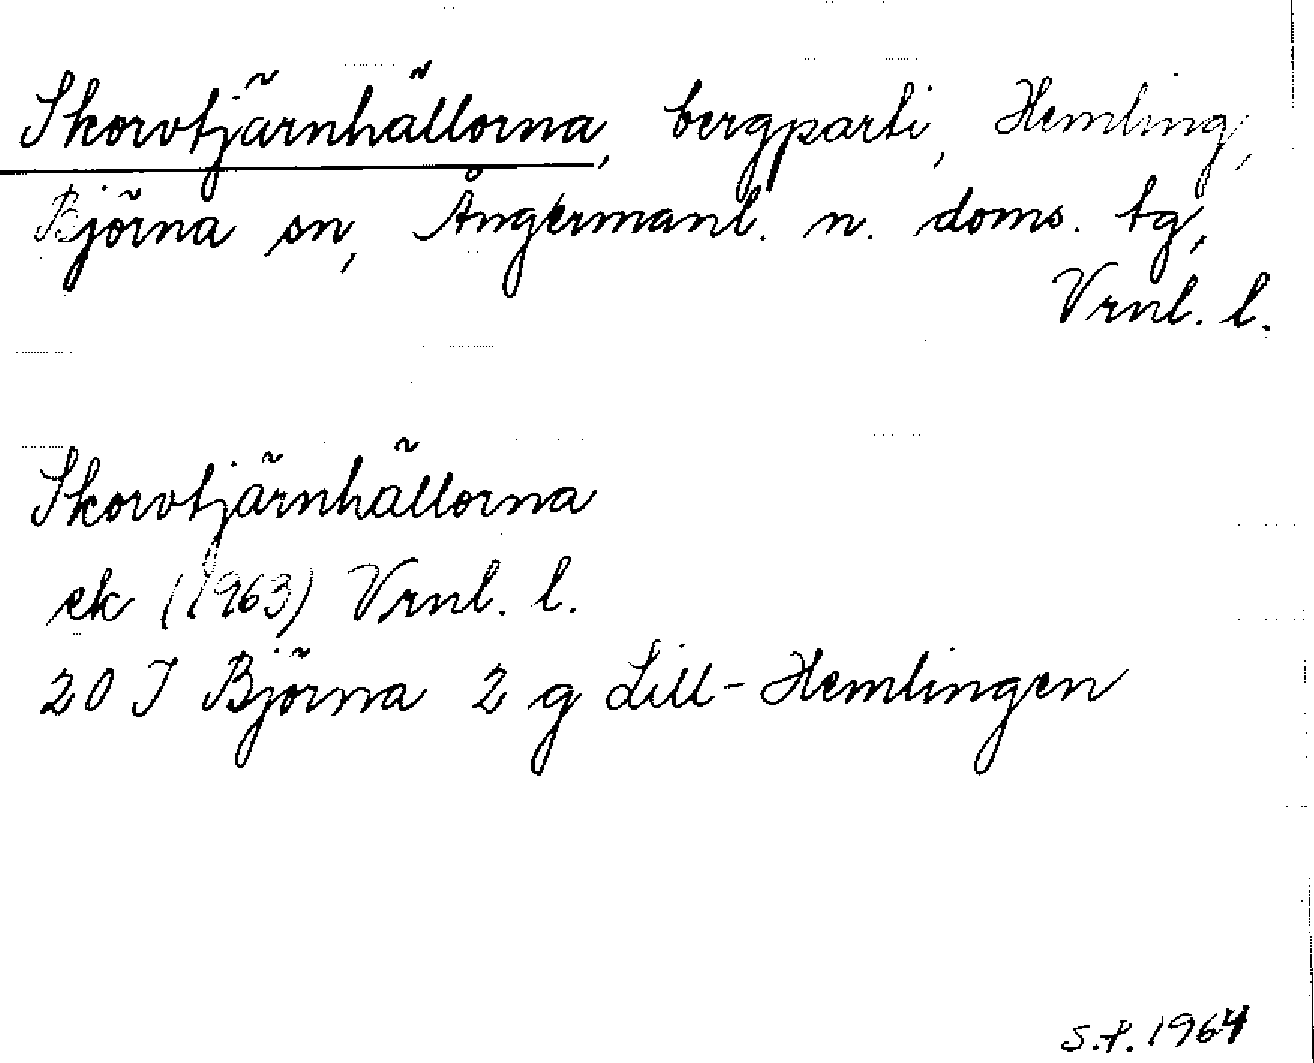 Skorvtjärnhällorna, bergparti, Hemling,
Björna sn, Ångermanl. n. doms. tg,
Vrnl. l.
Skorvtjärnhällorna
ek (1963) Vrnl. l.
20 I Björna 2 g Lill-Hemlingen
S.P. 1964